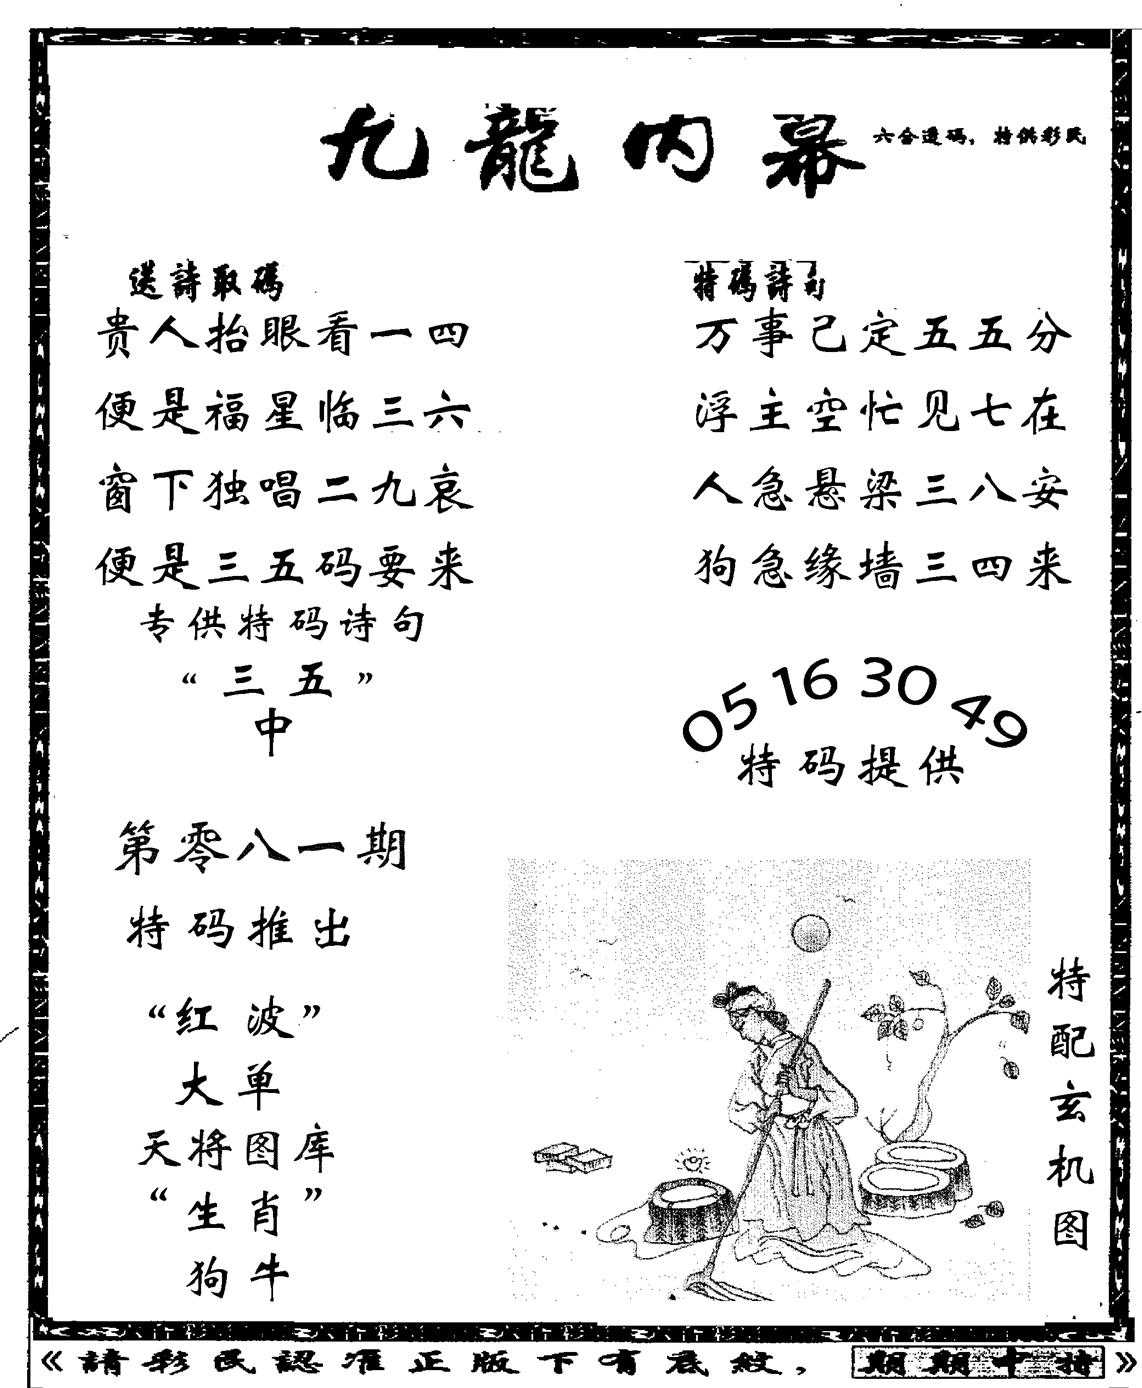 九龍内幕
六合透碼，特供彩民
送詩取碼
贵人抬眼看一四
便是福星临三六
窗下独唱二九哀
便是三五码要来
专供特码诗句
“三五”
中
特碼詩句
万事己定五五分
浮主空忙见七在
人急悬梁三八安
狗急缘墙三四来
05 16 30 49
特码提供
第零八一期
特码推出
“红波”
大单
天将图库
“生肖”
狗牛
特配玄机图
《請彩民認准正版下有底紋，期期中特》